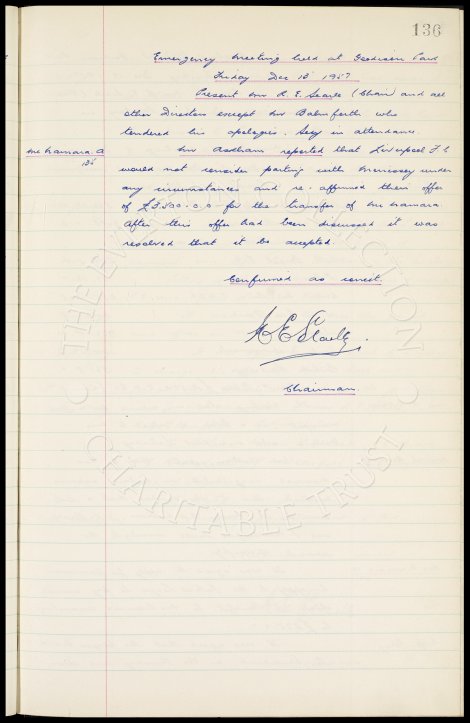 136
Emergency Meeting held at Goodison Park
Friday Dec 13 1957
Present Mr R. E. Searle (Chair) and all
other Directors except Mr Balmforth who
tendered his apologies. Secy in attendance.
McNamara. A
Mr Askham reported that Liverpool F.C
would not consider parting with Morrissey under
any circumstances and re-affirmed their offer
of £3.500-0-0 for the transfer of McNamara
After this offer had been discussed it was
resolved that it be accepted.
Confirmed as correct.
R E Searle
Chairman.
THE EVERTON COLLECTION
CHARITABLE TRUST